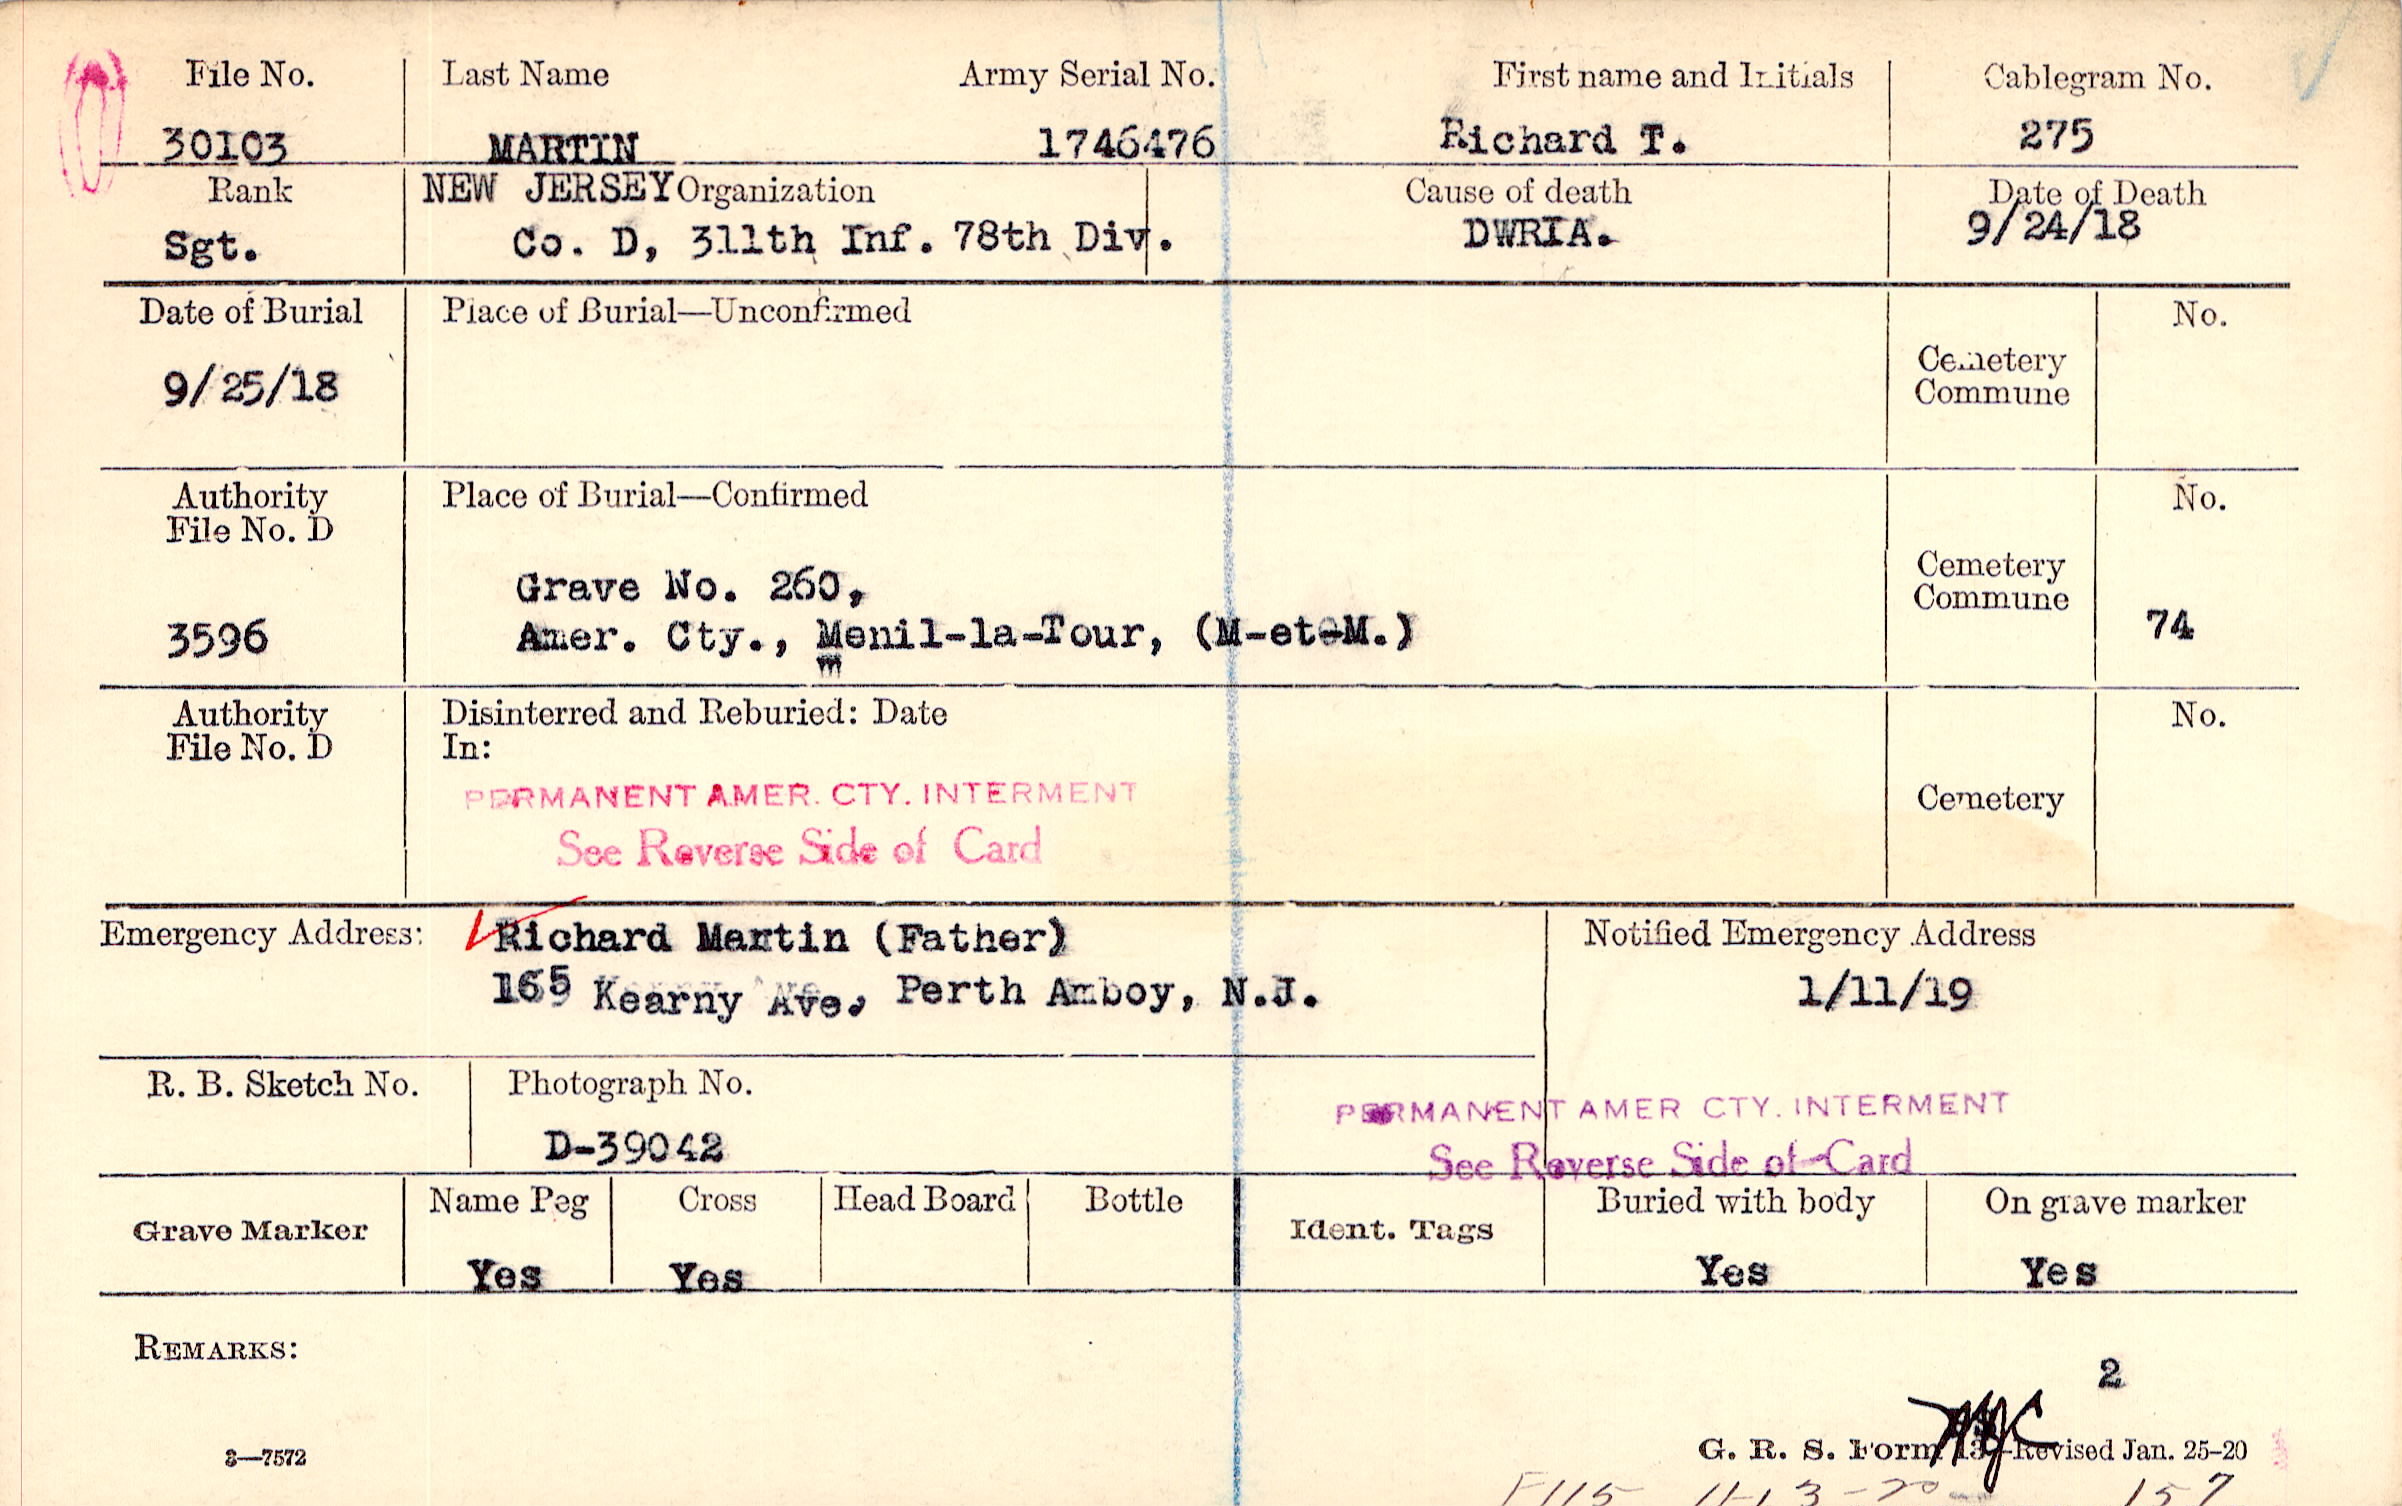 File No. Last Name Army Serial No. First name and Initials Cablegram No.
30103 MARTIN 1746476 Richard T. 275
Rank NEW JERSEY Organization Cause of death Date of Death
Sgt. Co. D, 311th Inf. 78th Div. DWRIA. 9/24/18
Date of Burial Place of Burial—Unconfirmed No.
Cemetery
Commune
9/25/18
Authority Place of Burial—Confirmed No.
File No. D
Cemetery
Commune
Grave No. 260,
3596 Amer. Cty., Menil-la-Tour, (M-et-M.) 74
Authority Disinterred and Reburied: Date No.
File No. D In:
PERMANENT AMER. CTY. INTERMENT Cemetery
See Reverse Side of Card
Emergency Address: Richard Martin (Father) Notified Emergency Address
165 Kearny Ave, Perth Amboy, N.J. 1/11/19
R. B. Sketch No. Photograph No.
PERMANENT AMER CTY. INTERMENT
D-39042 See Reverse Side of Card
Grave Marker Name Peg Cross Head Board Bottle Ident. Tags Buried with body On grave marker
Yes Yes Yes Yes
REMARKS:
2
3—7572 G. R. S. Form 13—Revised Jan. 25-20
11-13-20 157